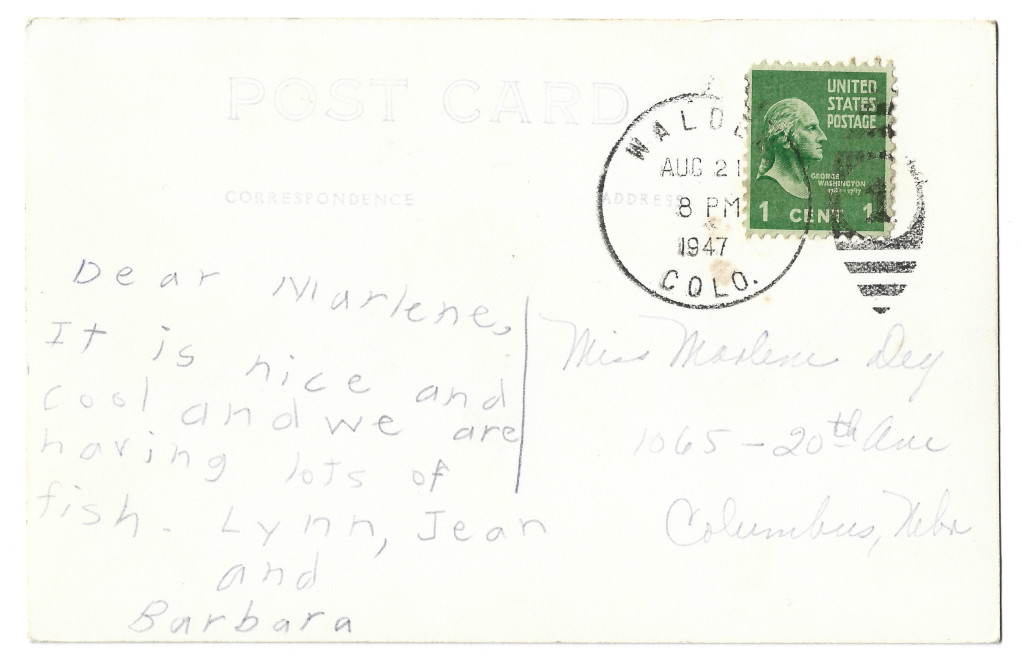 POST CARD
CORRESPONDENCE
ADDRESS
WALDEN
AUG 21
8 PM
1947
COLO.
UNITED
STATES
POSTAGE
GEORGE
WASHINGTON
1 CENT 1
Dear Marlene,
It is nice and
cool and we are
having lots of
fish. Lynn, Jean
and
Barbara
Miss Marlene Dey
1065 - 20th Ave
Columbus, Nebr.